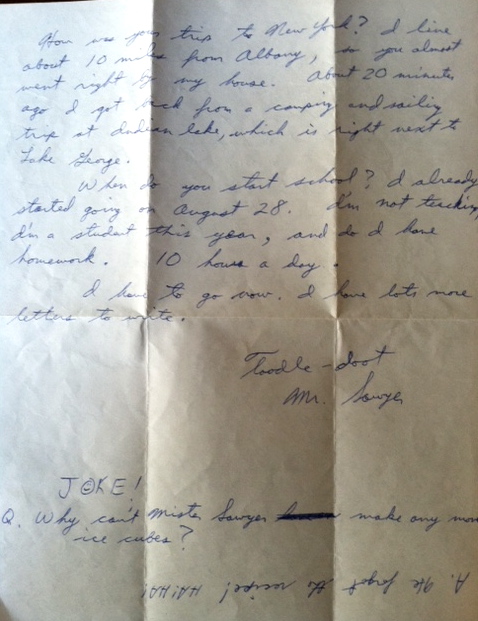 How was your trip to New York? I live
about 10 miles from Albany, so you almost
went right by my house. About 20 minutes
ago I got back from a camping and sailing
trip at Indian Lake, which is right next to
Lake George.
When do you start school? I already
started going on August 28. I'm not teaching,
I'm a student this year, and do I have
homework. 10 hours a day.
I have to go now. I have lots more
letters to write.
Toodle-doot
Mr. Sawyer
JOKE!
Q. Why can't Mister Sawyer make any more
ice cubes?
A. He forgot the recipe! HA!HA!